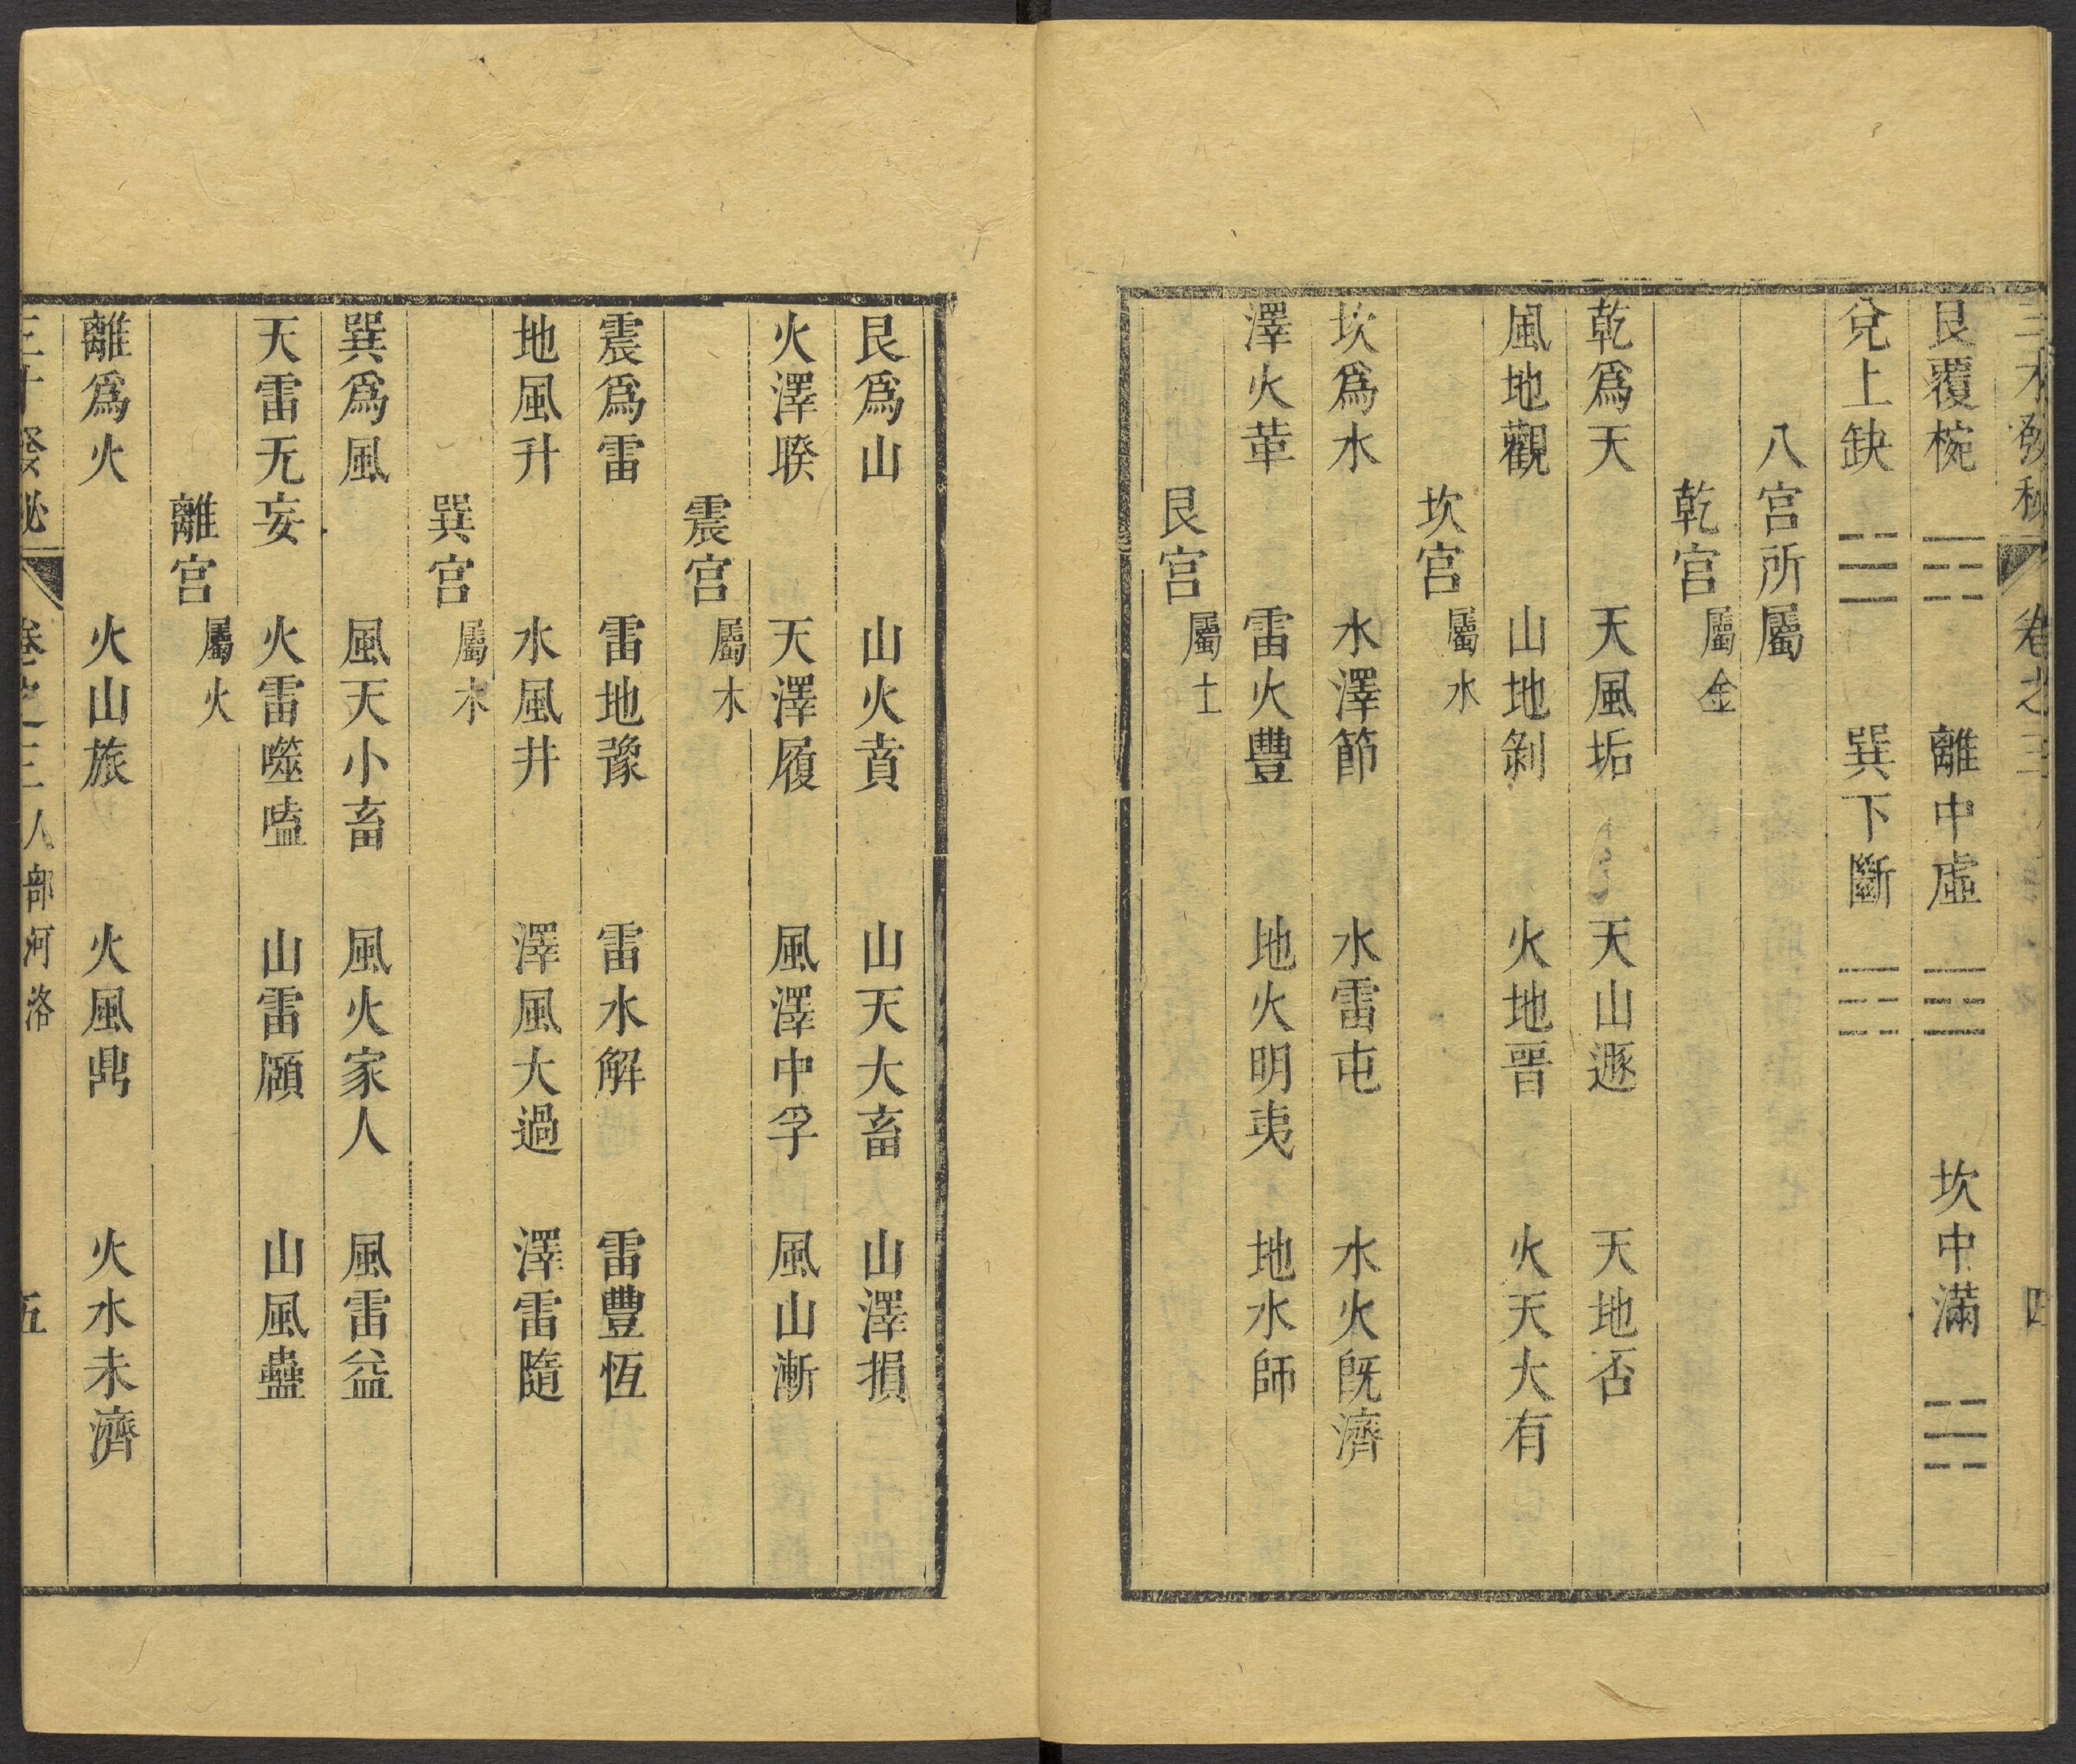 艮覆椀 ☶ 離中虛 ☲ 坎中滿 ☵
兌上缺 ☱ 巽下斷 ☴
八宮所屬
乾宮 屬金
乾爲天 天風垢 天山遯 天地否
風地觀 山地剝 火地晋 火天大有
坎宮 屬水
坎爲水 水澤節 水雷屯 水火旣濟
澤火革 雷火豐 地火明夷 地水師
艮宮 屬土
艮爲山 山火賁 山天大畜 山澤損
火澤睽 天澤履 風澤中孚 風山漸
震宮 屬木
震爲雷 雷地豫 雷水解 雷豐恆
地風升 水風井 澤風大過 澤雷隨
巽宮 屬木
巽爲風 風天小畜 風火家人 風雷益
天雷无妄 火雷噬嗑 山雷頤 山風蠱
離宮 屬火
離爲火 火山旅 火風鼎 火水未濟
卷之三人部河洛 五